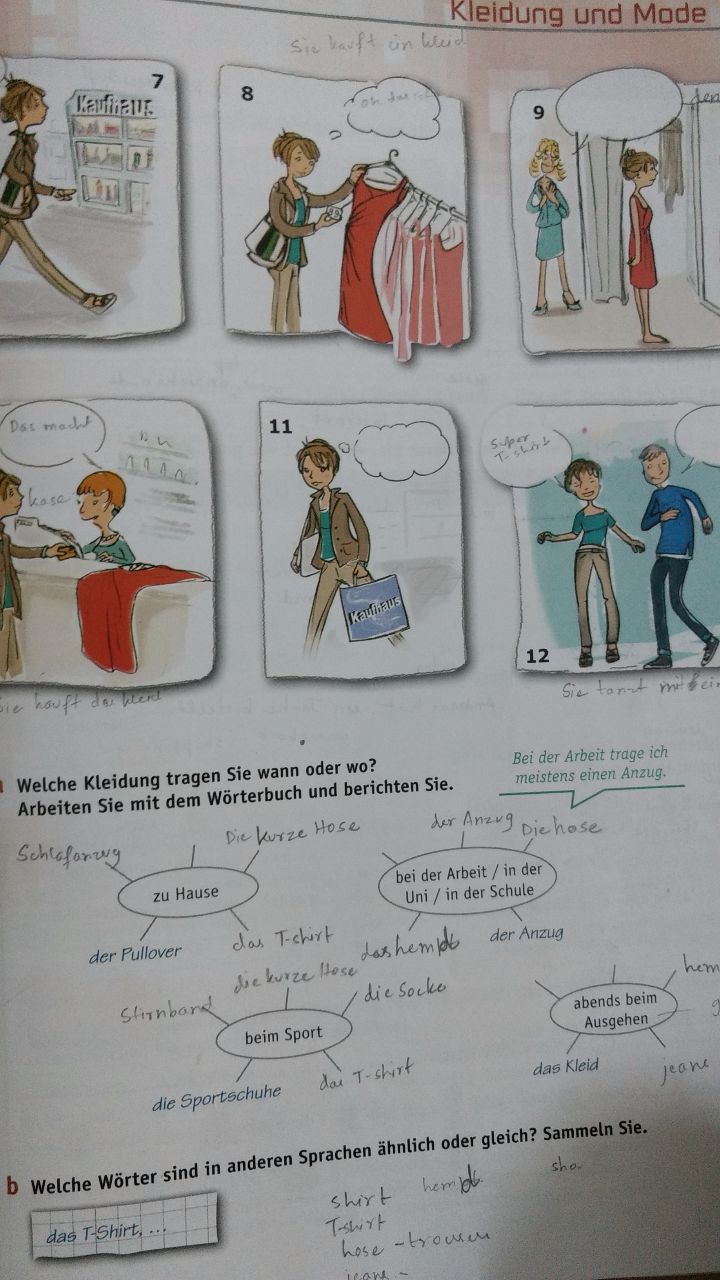 Kleidung und Mode
Sie kauft ein kleid
7
Kaufhaus
8
oh das
9
Das macht
kase
11
Kaufhaus
Super
T-shirt
12
Sie kauft das kleid
Sie tanzt mit
Welche Kleidung tragen Sie wann oder wo?
Arbeiten Sie mit dem Wörterbuch und berichten Sie.
Bei der Arbeit trage ich
meistens einen Anzug.
Schlafanzug
Die kurze Hose
zu Hause
der Pullover
das T-shirt
der Anzug
Die hose
bei der Arbeit / in der
Uni / in der Schule
das hemd
der Anzug
Stirnband
die kurze Hose
die Socke
beim Sport
die Sportschuhe
das T-shirt
hem
abends beim
Ausgehen
das Kleid
jeans
b Welche Wörter sind in anderen Sprachen ähnlich oder gleich? Sammeln Sie.
das T-Shirt, ...
shirt hemd
T-shirt
hose - trousers
jeans -